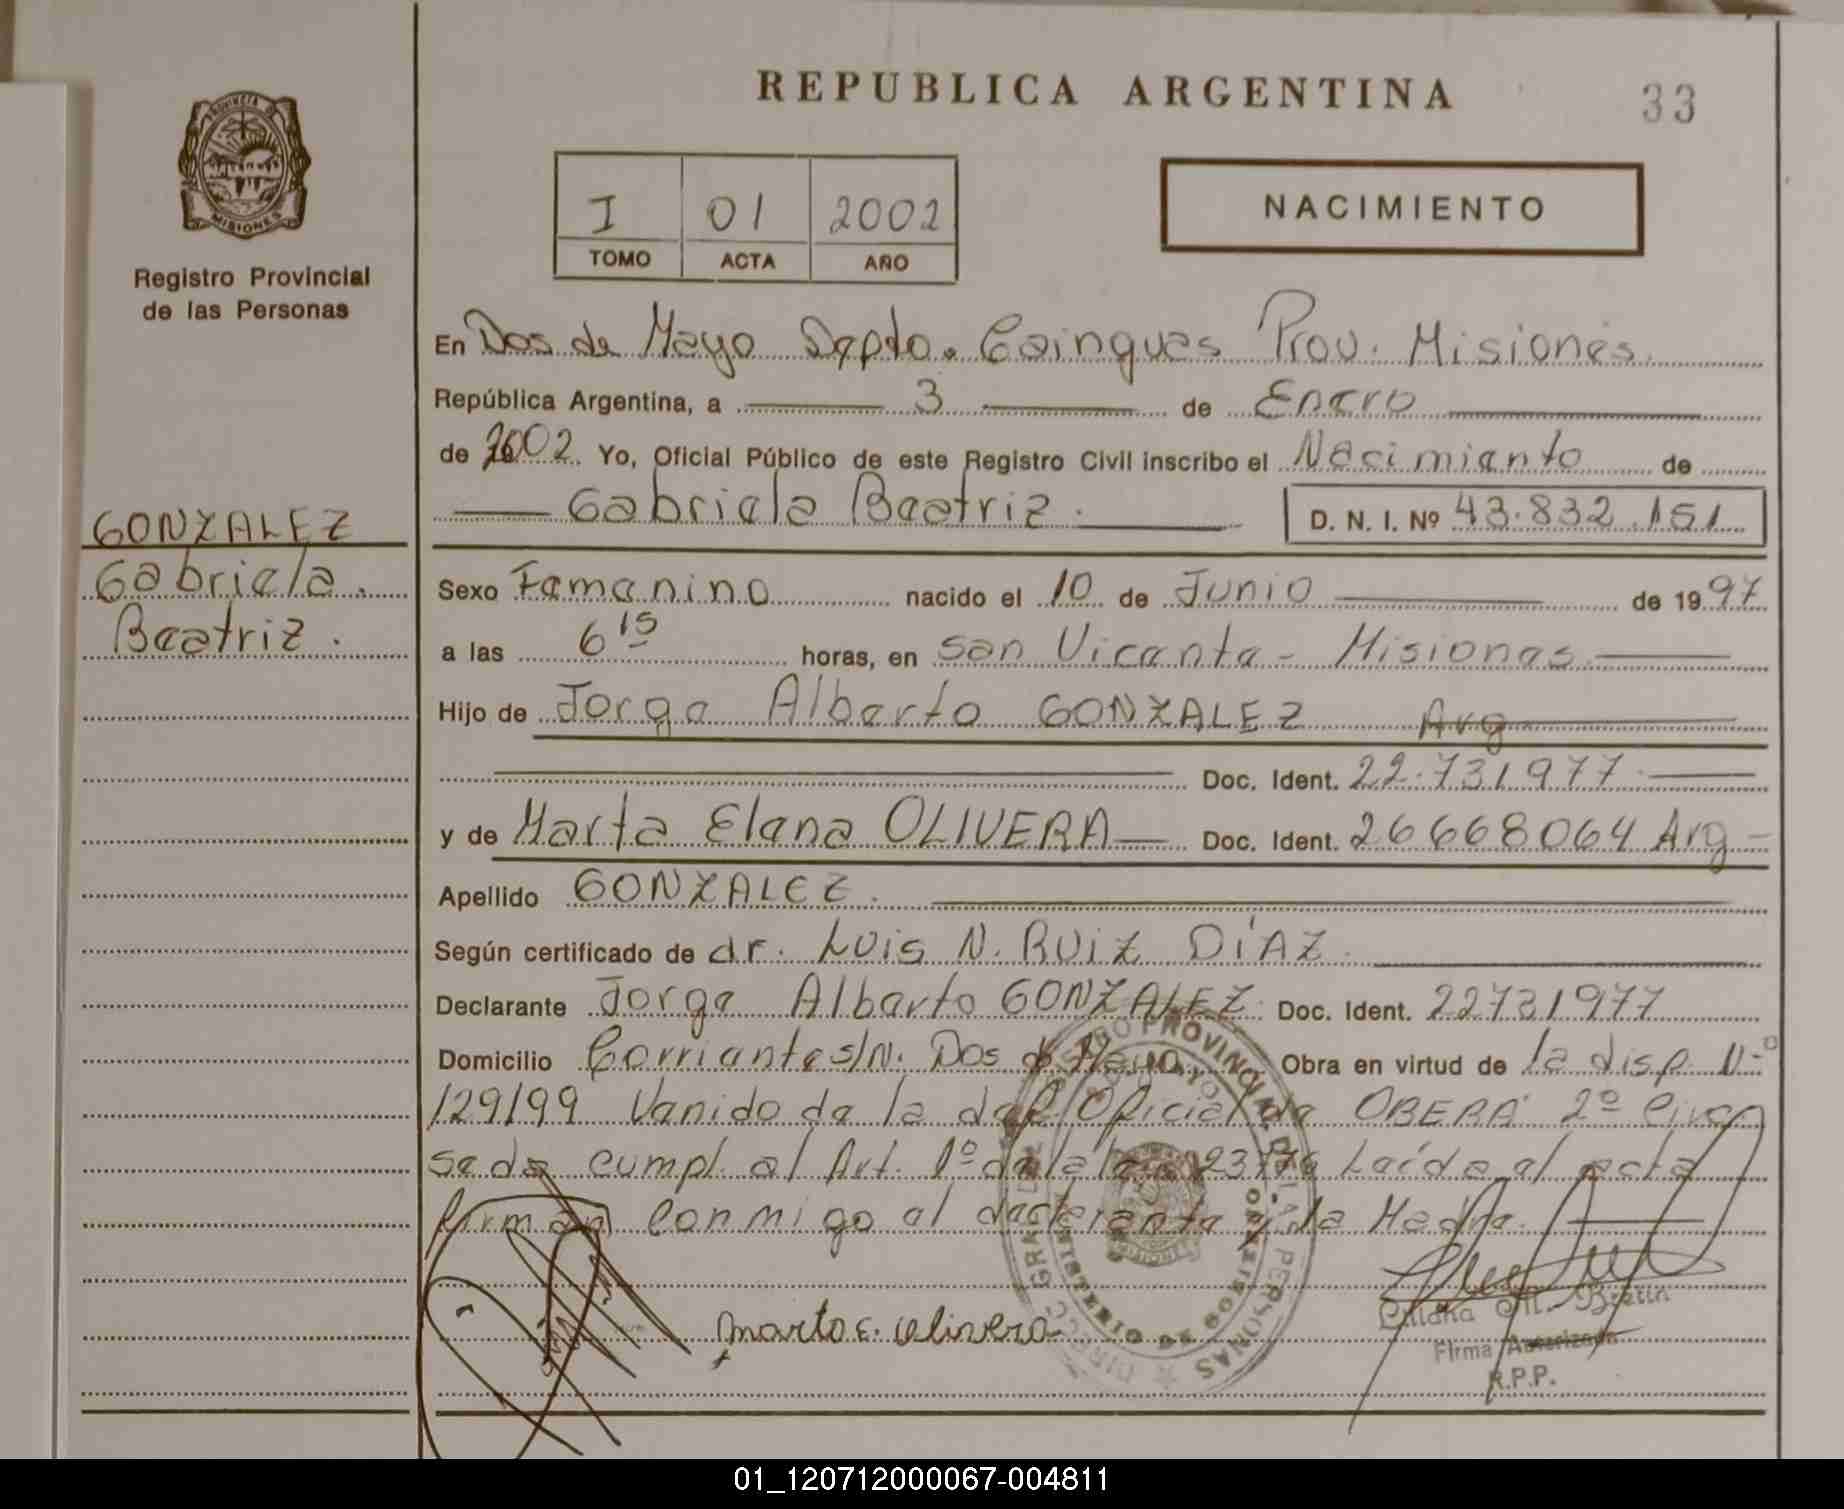 REPUBLICA ARGENTINA
33
PROVINCIA DE
MISIONES
Registro Provincial
de las Personas
I 01 2002
TOMO ACTA AÑO
NACIMIENTO
En Dos de Mayo Depto. Cainguas Prov. Misiones
República Argentina, a 3 de Enero
de 2002 Yo, Oficial Público de este Registro Civil inscribo el Nacimiento de
Gabriela Beatriz. D. N. I. Nº 43.832.151
GONZALEZ
Gabriela.
Beatriz.
Sexo Femenino nacido el 10 de Junio de 1997
a las 6 15 horas, en San Vicente - Misiones
Hijo de Jorge Alberto GONZALEZ Arg
Doc. Ident. 22.731977
y de Marta Elena OLIVERA Doc. Ident. 26668064 Arg
Apellido GONZALEZ.
Según certificado de dr. Luis N. RUIZ DÍAZ.
Declarante Jorge Alberto GONZALEZ Doc. Ident. 22731977
Domicilio Corrientes S/N. Dos de Mayo Obra en virtud de la disp N-º
129/99 Venido de la del. Oficial de OBERA 2º
se da cumpl. al Art. 1º de la ley 23776 Leída el acta
firman conmigo el declarante y la Madre.
Marta E. Olivera
Bretin
Firma Autorizada
R.P.P.
01_120712000067-004811